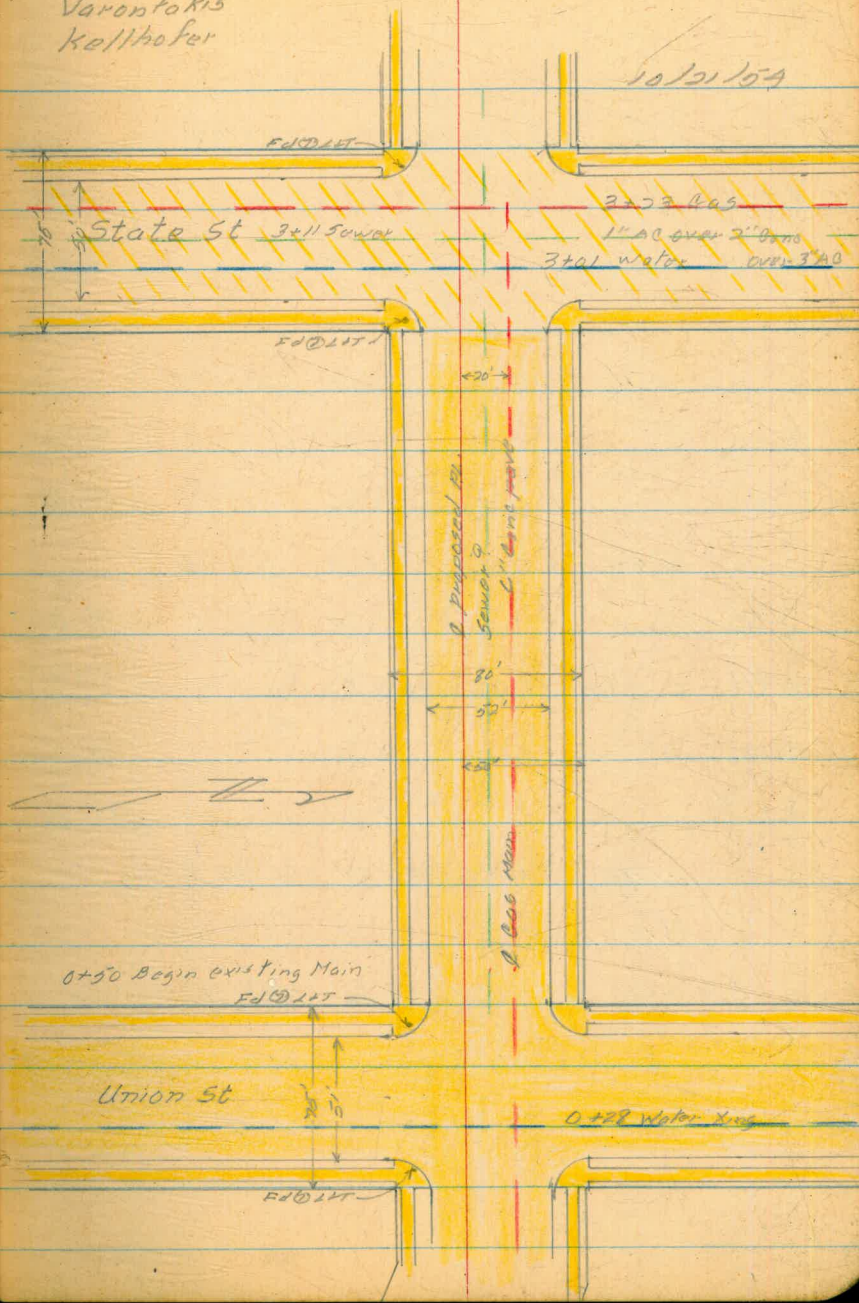 Varontakis
Kellhofer
10/21/54
Fd ⊡ L&T
75'
State St
3+11 Sewer
3+23 Gas
1" AC over 2" Conc
over 3" AB
3+01 Water
Fd ⊡ L&T
20'
℄ Proposed PL
Sewer ?
6" Conc pave
80'
52'
℄ Gas Main
0+50 Begin existing Main
Fd ⊡ L&T
Union St
75'
51'
0+28 Water Xing
Fd ⊡ L&T